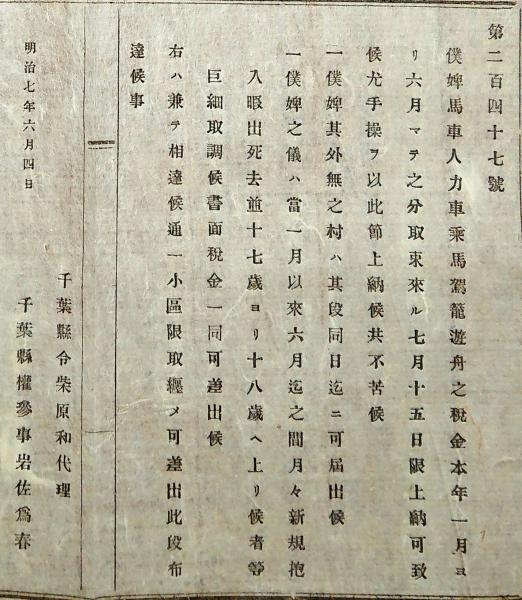 第二百四十七號
僕婢馬車人力車乘馬駕籠遊舟之税金本年一月ヨ
リ六月マテ之分取束來ル七月十五日限上納可致
候尤手操ヲ以此節上納候共不苦候
一僕婢其外無之村ハ其段同日迄ニ可届出候
一僕婢之儀ハ當一月以來六月迄之間月々新規抱
入暇出死去並十七歳ヨリ十八歳ヘ上リ候者等
巨細取調候書面税金一同可差出候
右ハ兼テ相達候通一小區限取纒メ可差出此段布
達候事
千葉縣令柴原和代理
明治七年六月四日
千葉縣權參事岩佐爲春